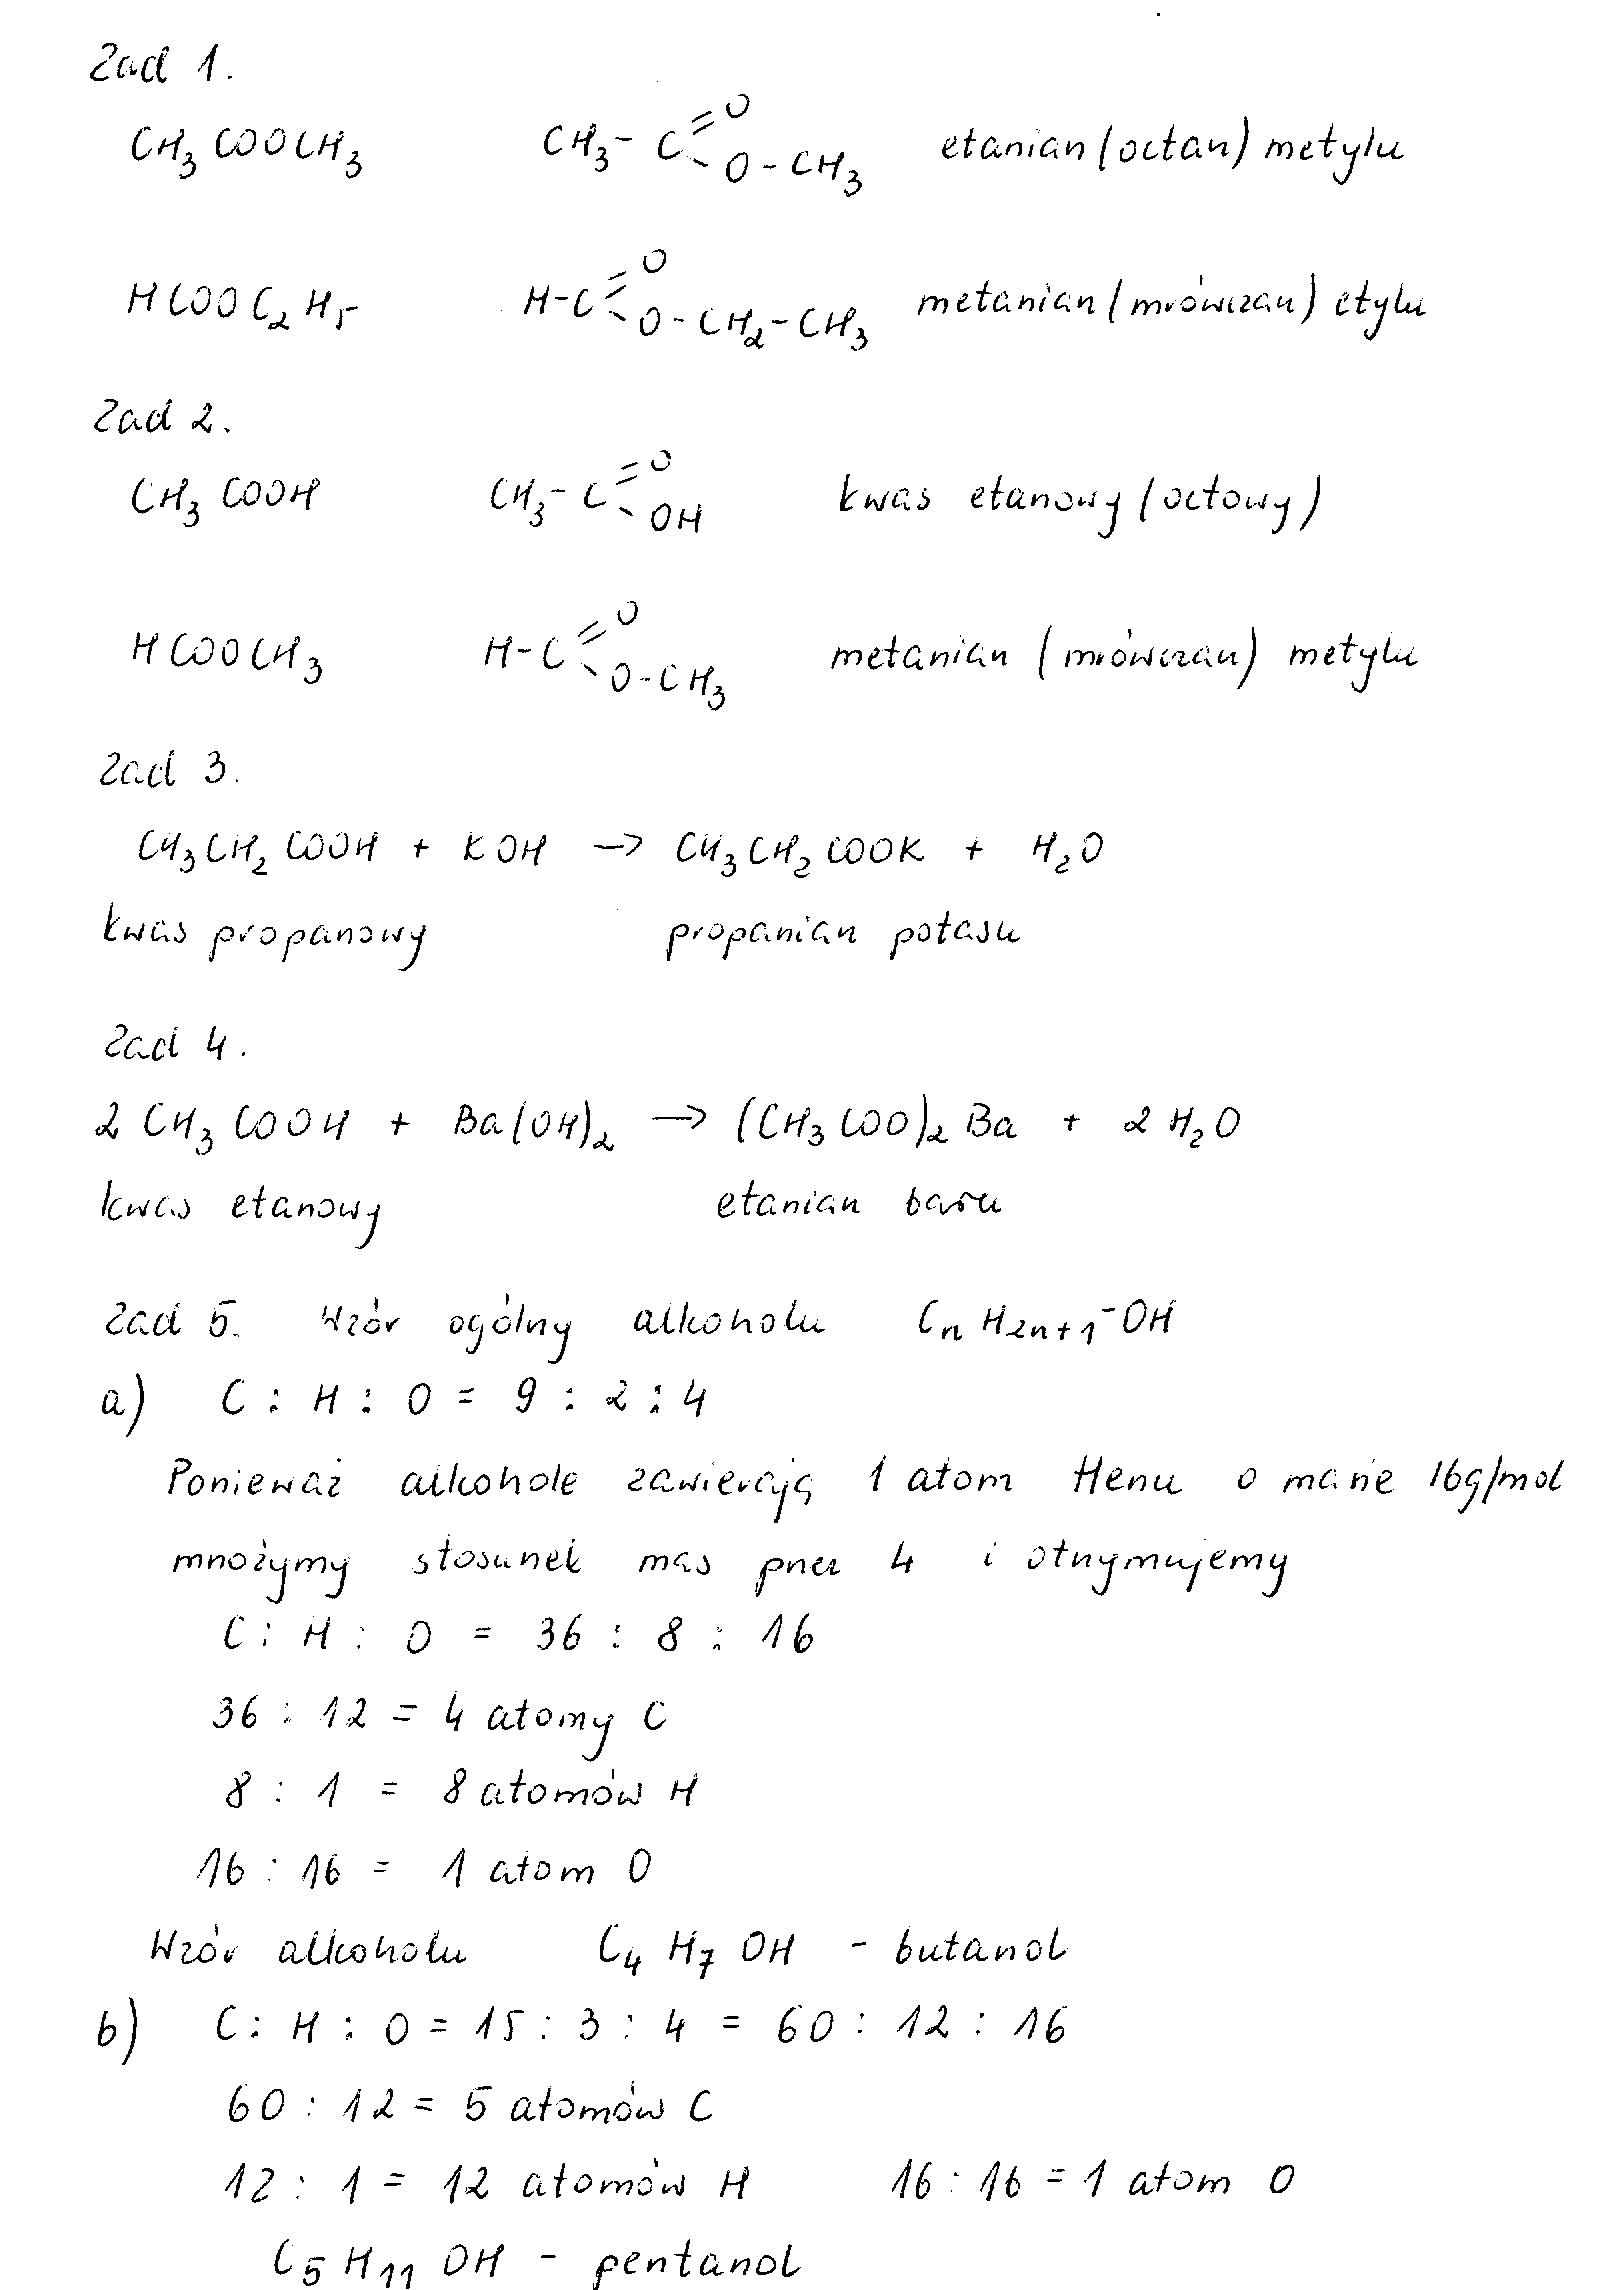 Zad 1.
CH₃COOCH₃ CH₃-C(=O)-O-CH₃ etanian (octan) metylu
HCOOC₂H₅ H-C(=O)-O-CH₂-CH₃ metanian (mrówczan) etylu
Zad 2.
CH₃COOH CH₃-C(=O)-OH kwas etanowy (octowy)
HCOOCH₃ H-C(=O)-O-CH₃ metanian (mrówczan) metylu
Zad 3.
CH₃CH₂COOH + KOH → CH₃CH₂COOK + H₂O
kwas propanowy propanian potasu
Zad 4.
2 CH₃COOH + Ba(OH)₂ → (CH₃COO)₂Ba + 2 H₂O
kwas etanowy etanian baru
Zad 5. Wzór ogólny alkoholu CₙH₂ₙ₊₁-OH
a) C : H : O = 9 : 2 : 4
Ponieważ alkohole zawierają 1 atom tlenu o masie 16g/mol
mnożymy stosunek mas przez 4 i otrzymujemy
C : H : O = 36 : 8 : 16
36 : 12 = 4 atomy C
8 : 1 = 8 atomów H
16 : 16 = 1 atom O
Wzór alkoholu C₄H₇OH - butanol
b) C : H : O = 15 : 3 : 4 = 60 : 12 : 16
60 : 12 = 5 atomów C
12 : 1 = 12 atomów H 16 : 16 = 1 atom O
C₅H₁₁OH - pentanol